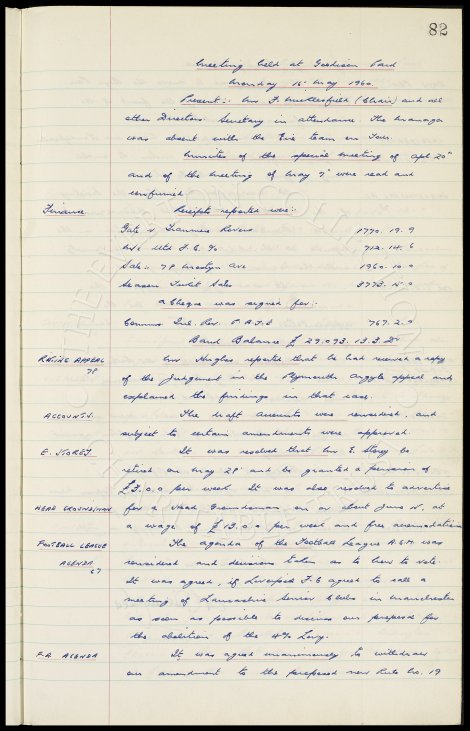 82
Meeting held at Goodison Park
Monday 16th May 1960.
Present:- Mr F. Micklesfield (Chair) and all
other Directors. Secretary in attendance. The Manager
was absent with the Eire team on Tour.
Minutes of the special meeting of Apl 20th
and of the meeting of May 9th were read and
confirmed
Finance Receipts reported were:-
Gate v Tranmere Rovers 1770. 19. 9
M/c Utd F.C. % 712. 14. 6
Sale:- 78 Mostyn Ave 1960. 10. 0
Season Ticket Sales 3773. 15. 0
a Cheque was signed for:-
Commrs Inl. Rev. 767. 2. 0
Bank Balance £ 29.093. 13. 3 Dr
RATING APPEAL Mr Hughes reported that he had received a copy
78
of the Judgement in the Plymouth Argyle appeal and
explained the findings in that case.
ACCOUNTS. The draft accounts were considered, and
subject to certain amendments were approved.
E. STOREY. It was resolved that Mr E. Storey be
retired on May 28th and be granted a pension of
£3.0.0 per week. It was also resolved to advertise
HEAD GROUNDSMAN for a Head Groundsman on or about June 15, at
a wage of £13.0.0 per week and free accomodation
FOOTBALL LEAGUE The agenda of the Football League A.G.M. was
AGENDA considered and decisions taken as to how to vote.
67
It was agreed, if Liverpool F.C agreed to call a
meeting of Lancashire Senior Clubs in Manchester
as soon as possible to discuss our proposal for
the abolition of the 4% Levy.
F.A AGENDA It was agreed unanimously to withdraw
our amendment to the proposed new Rule No. 19